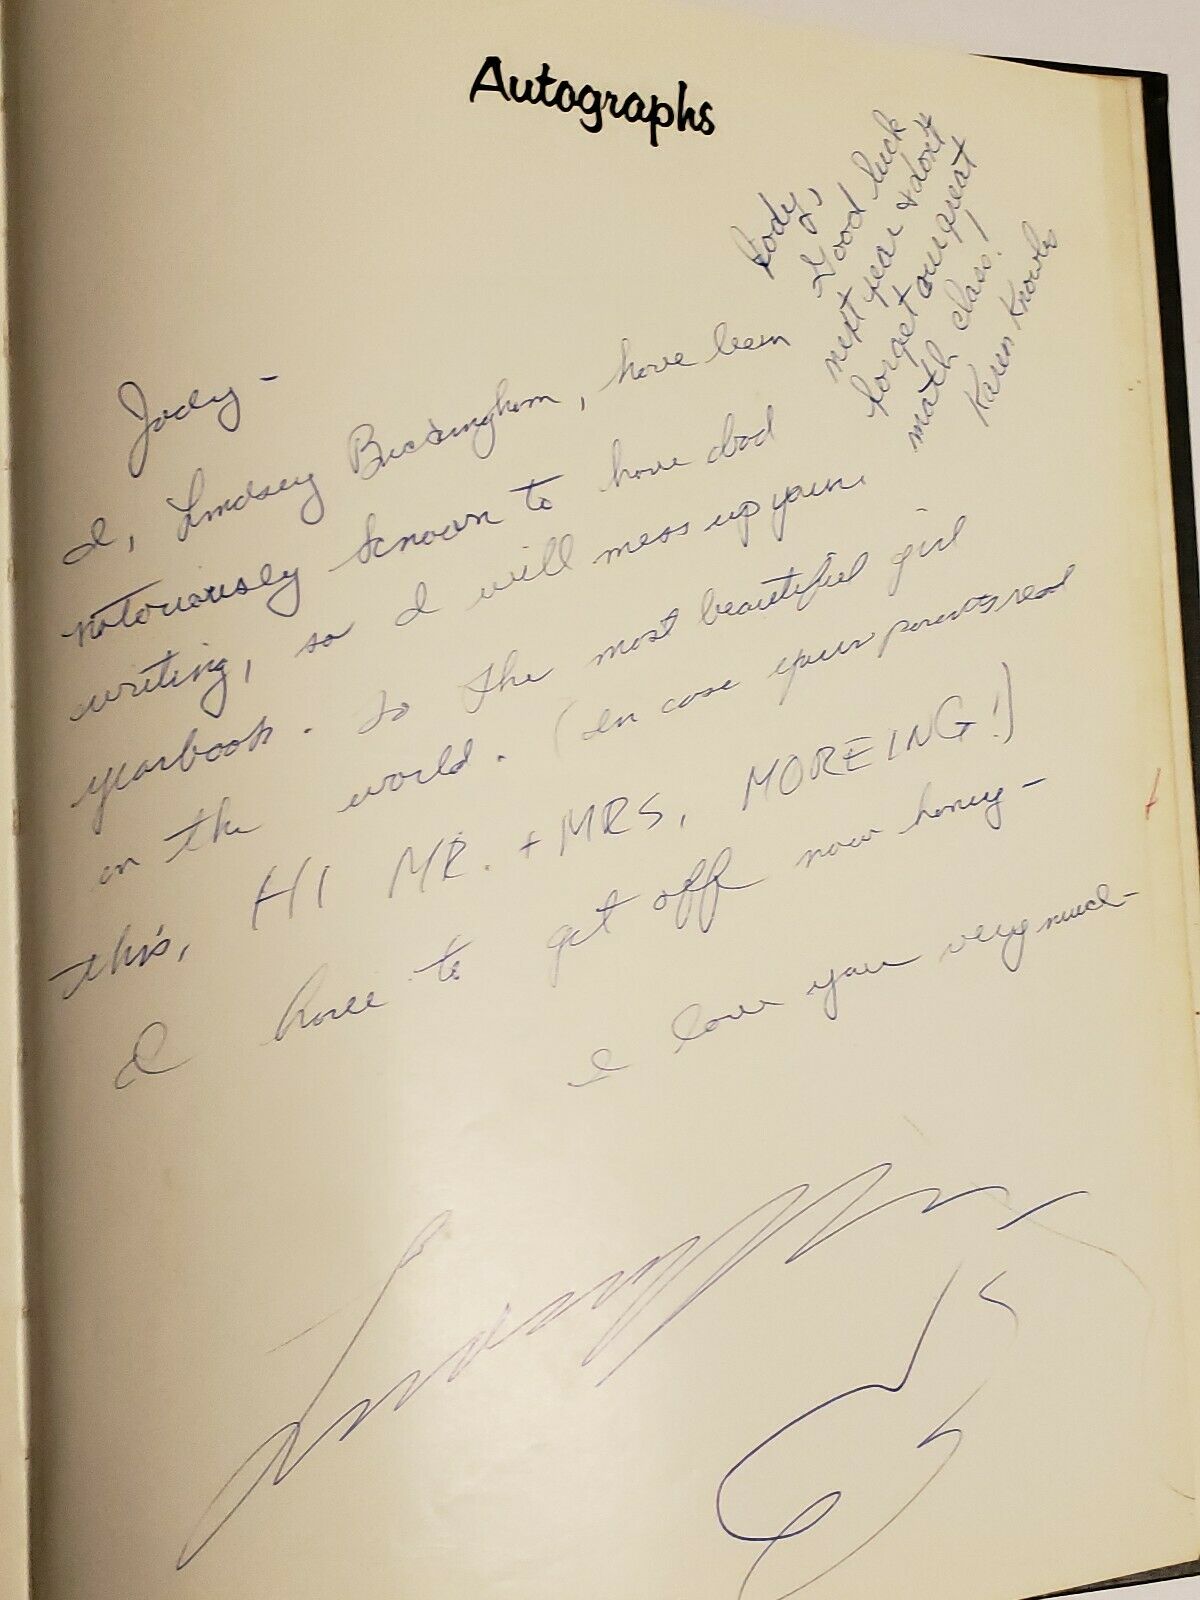 Autographs
Jody,
Good luck
next year & don't
forget our great
math class!
Karen Knowles
Jody -
I, Lindsey Buckingham, have been
notoriously known to have bad
writing, so I will mess up your
yearbook. To the most beautiful girl
in the world. (In case your parents read
this, HI MR. + MRS. MOREING!)
I have to get off now honey -
I love you very much -
Lindsey